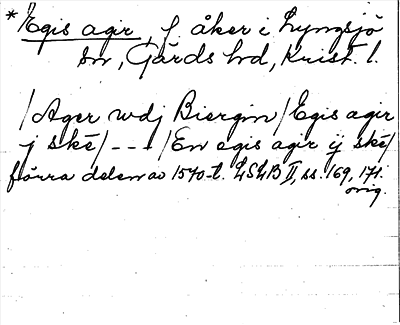 *Egis agir, f. åker i Lyngsjö
sn, Gärds hd, Krist. l.
/Ager wdj Biergin/Egis agir
j skē/---/En egis agir ij skē/
förra delen av 1570-t. LSLB II, ss. 169, 171.
orig.